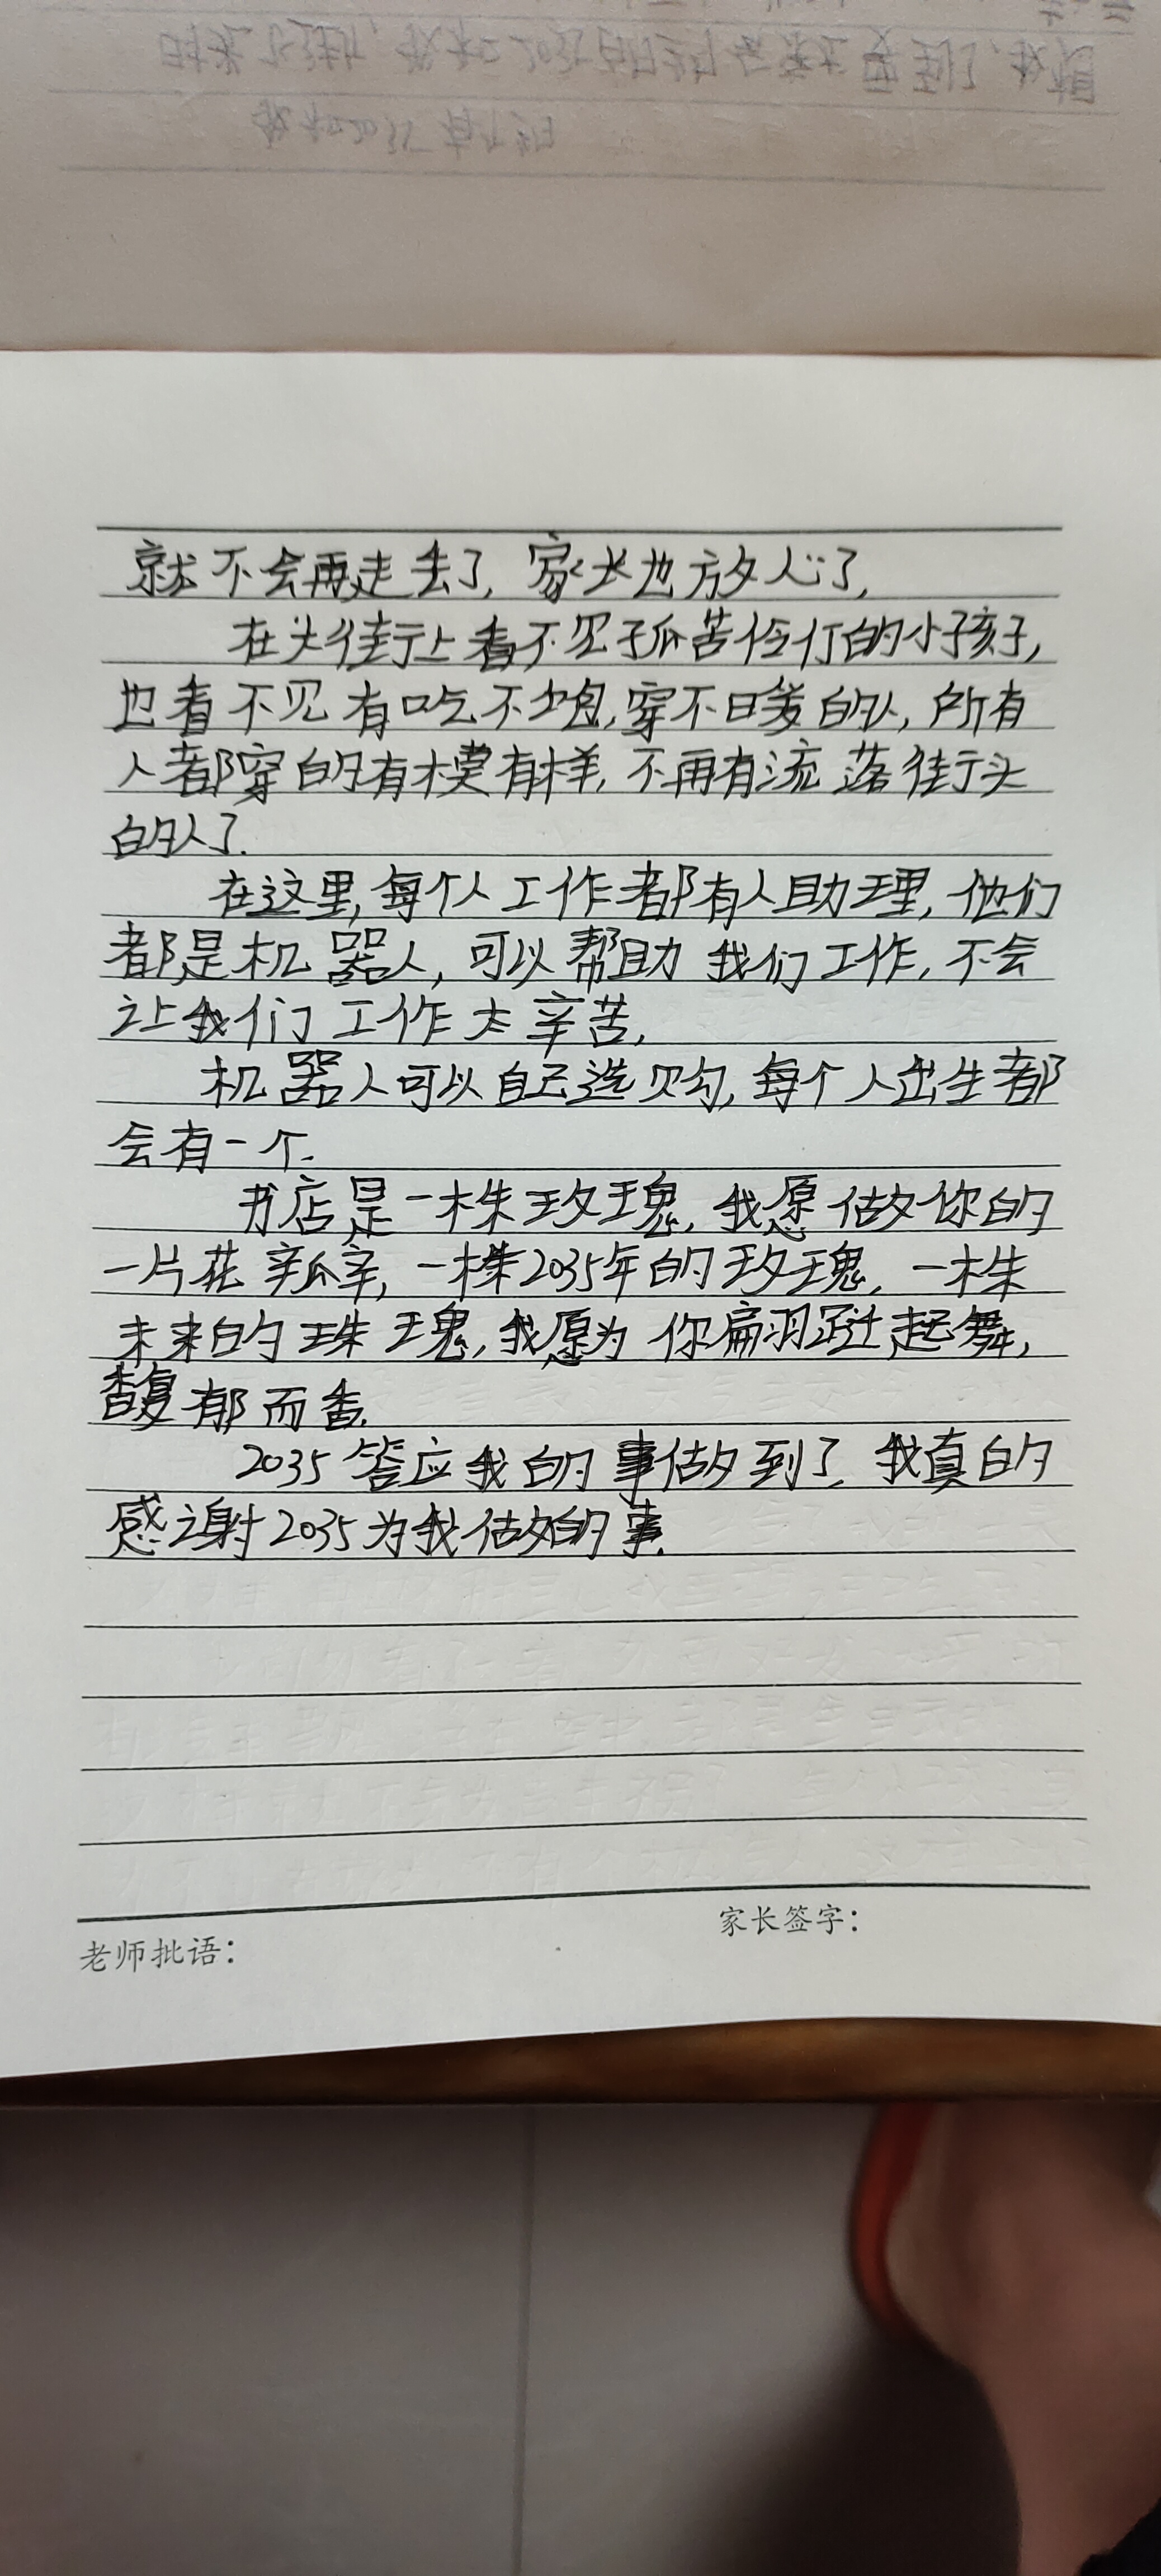 就不会再走丢了，家长也放心了，
在大街上看不见孤苦伶仃的小孩子，
也看不见有吃不饱，穿不暖的人，所有
人都穿的有模有样，不再有流落街头
的人了.
在这里，每个人工作都有人助理，他们
都是机器人，可以帮助我们工作，不会
让我们工作太辛苦，
机器人可以自己选购，每个人出生都
会有一个.
书店是一株玫瑰，我愿做你的
一片花瓣，一株2035年的玫瑰，一株
未来的珠瑰，我愿为你翩跹起舞，
馥郁而香.
2035答应我的事做到了，我真的
感谢2035为我做的事.
家长签字：
老师批语：